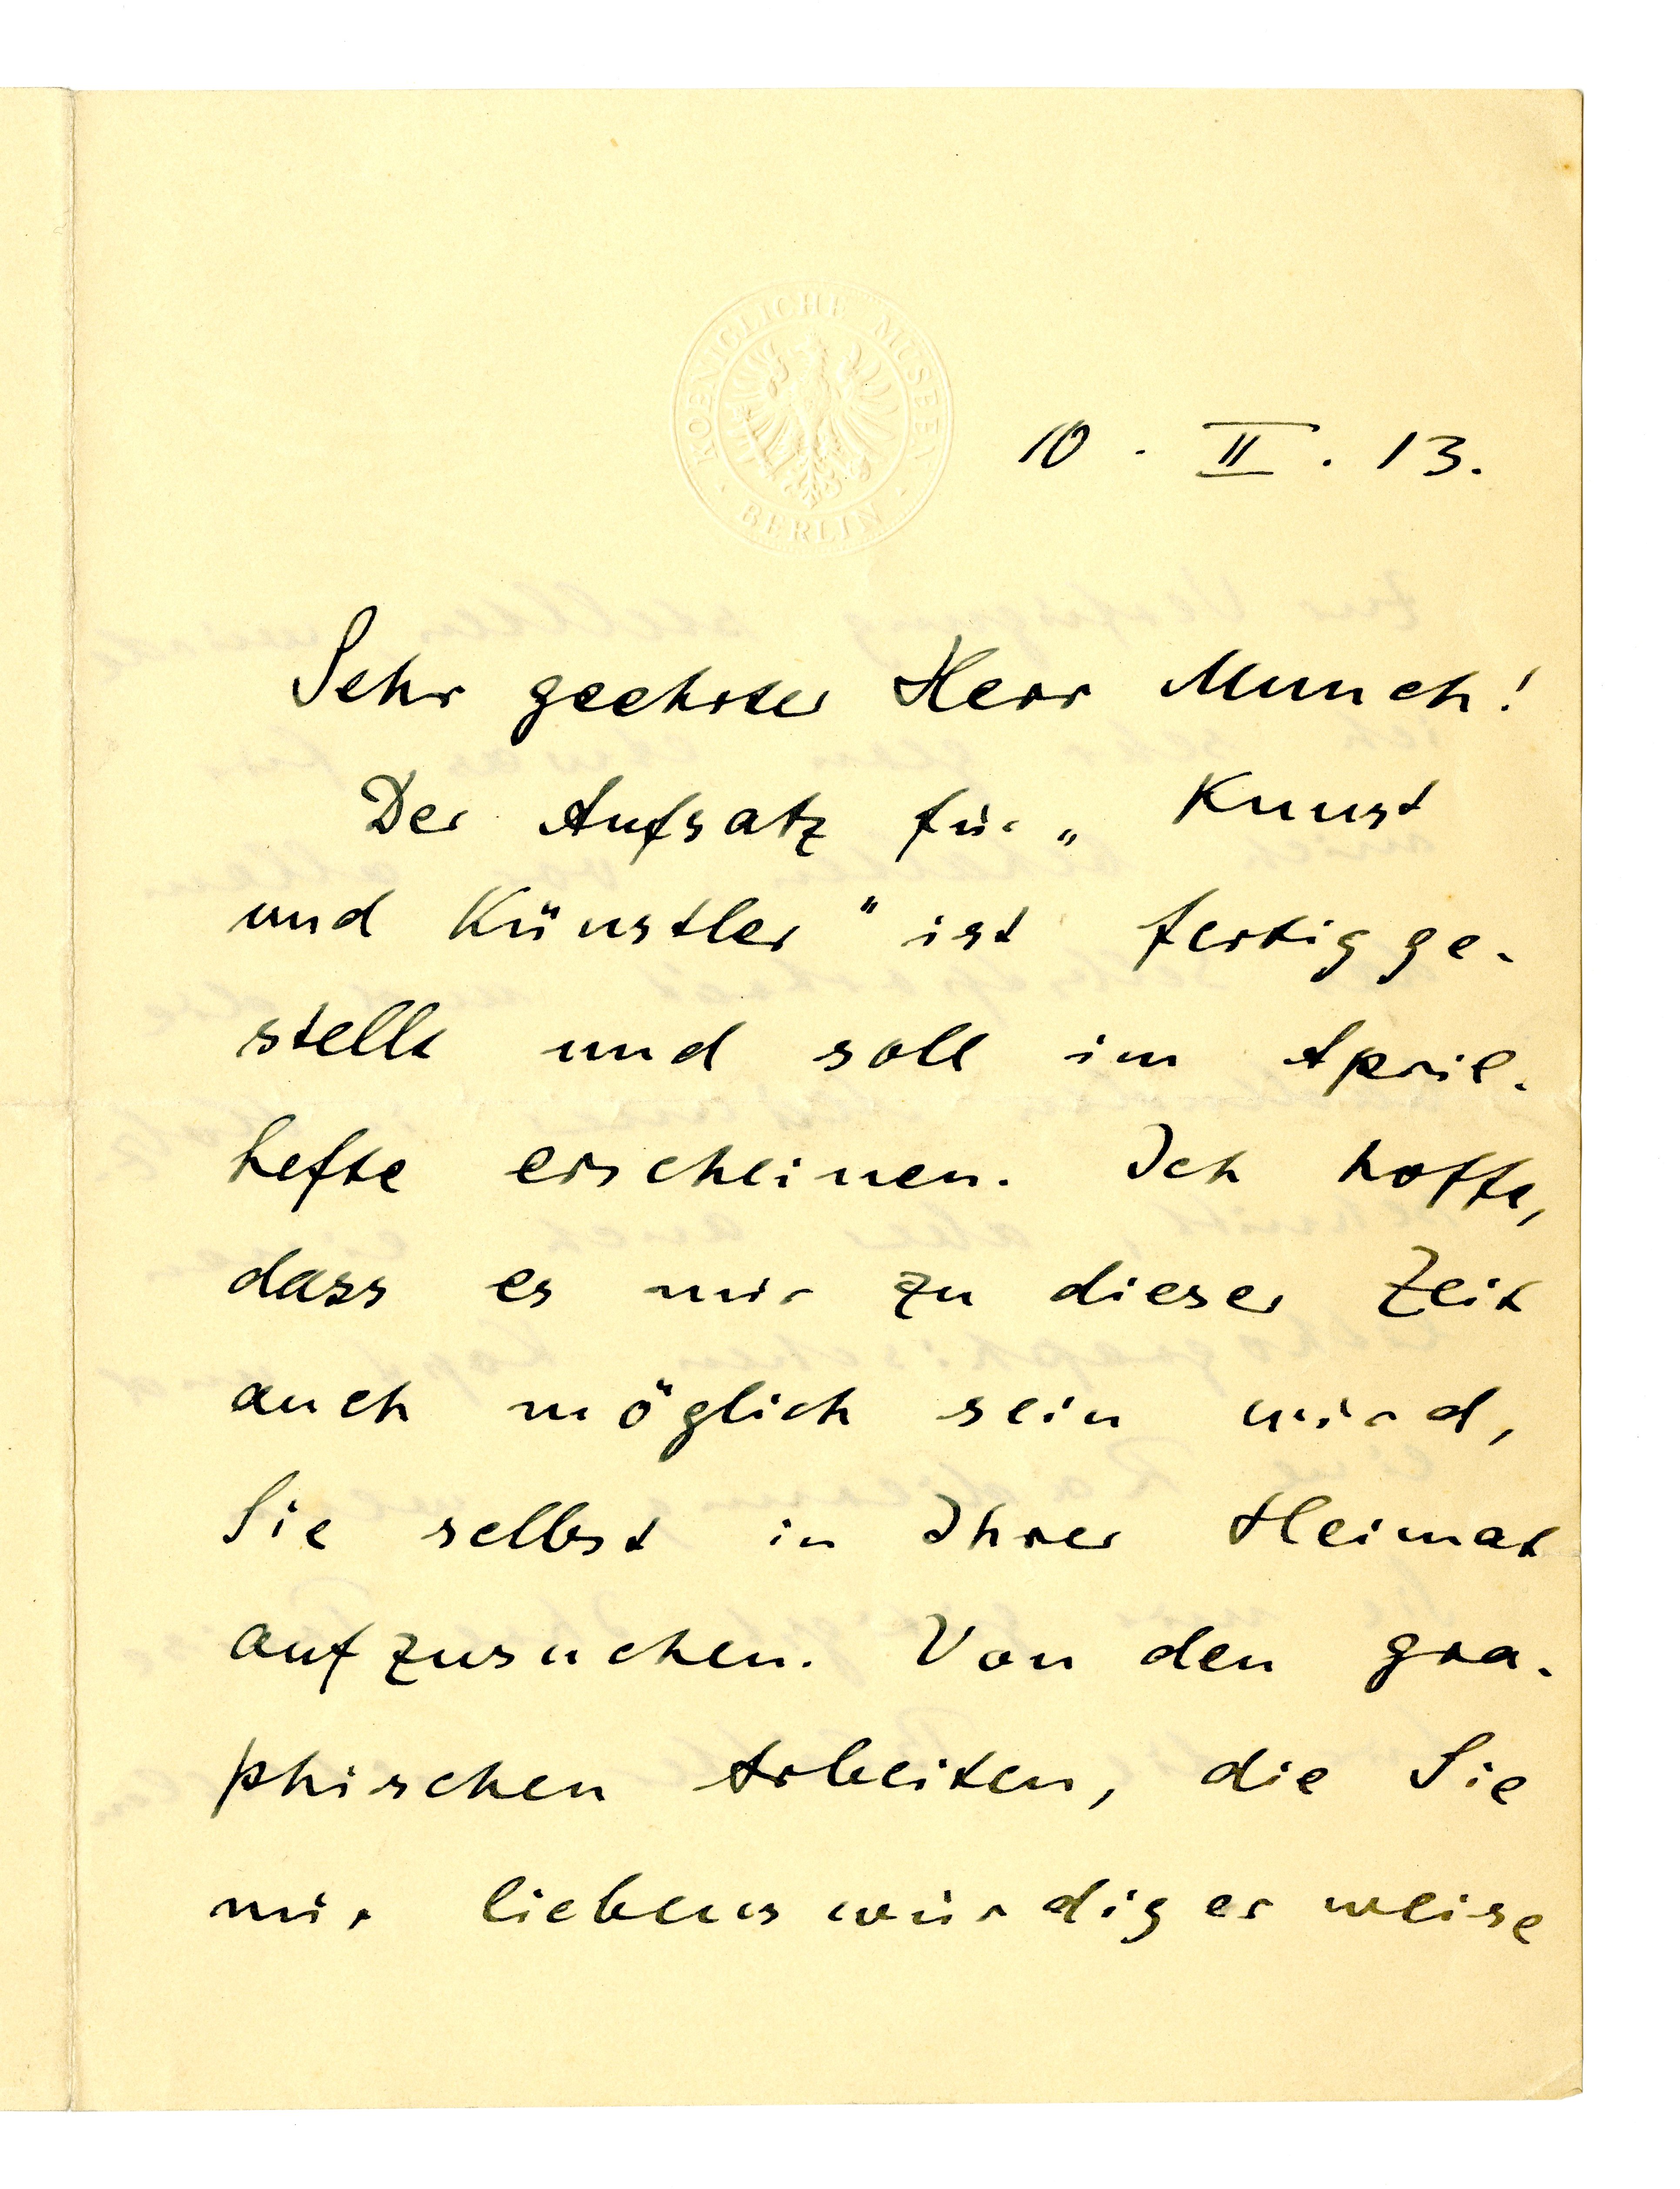 KOENIGLICHE MUSEEN · BERLIN ·
10. II. 13.
Sehr geehrter Herr Munch!
Der Aufsatz für „Kunst
und Künstler" ist fertigge-
stellt und soll im April-
hefte erscheinen. Ich hoffe,
dass es mir zu dieser Zeit
auch möglich sein wird,
Sie selbst in Ihrer Heimat
aufzusuchen. Von den gra-
phischen Arbeiten, die Sie
mir liebenswürdiger weise